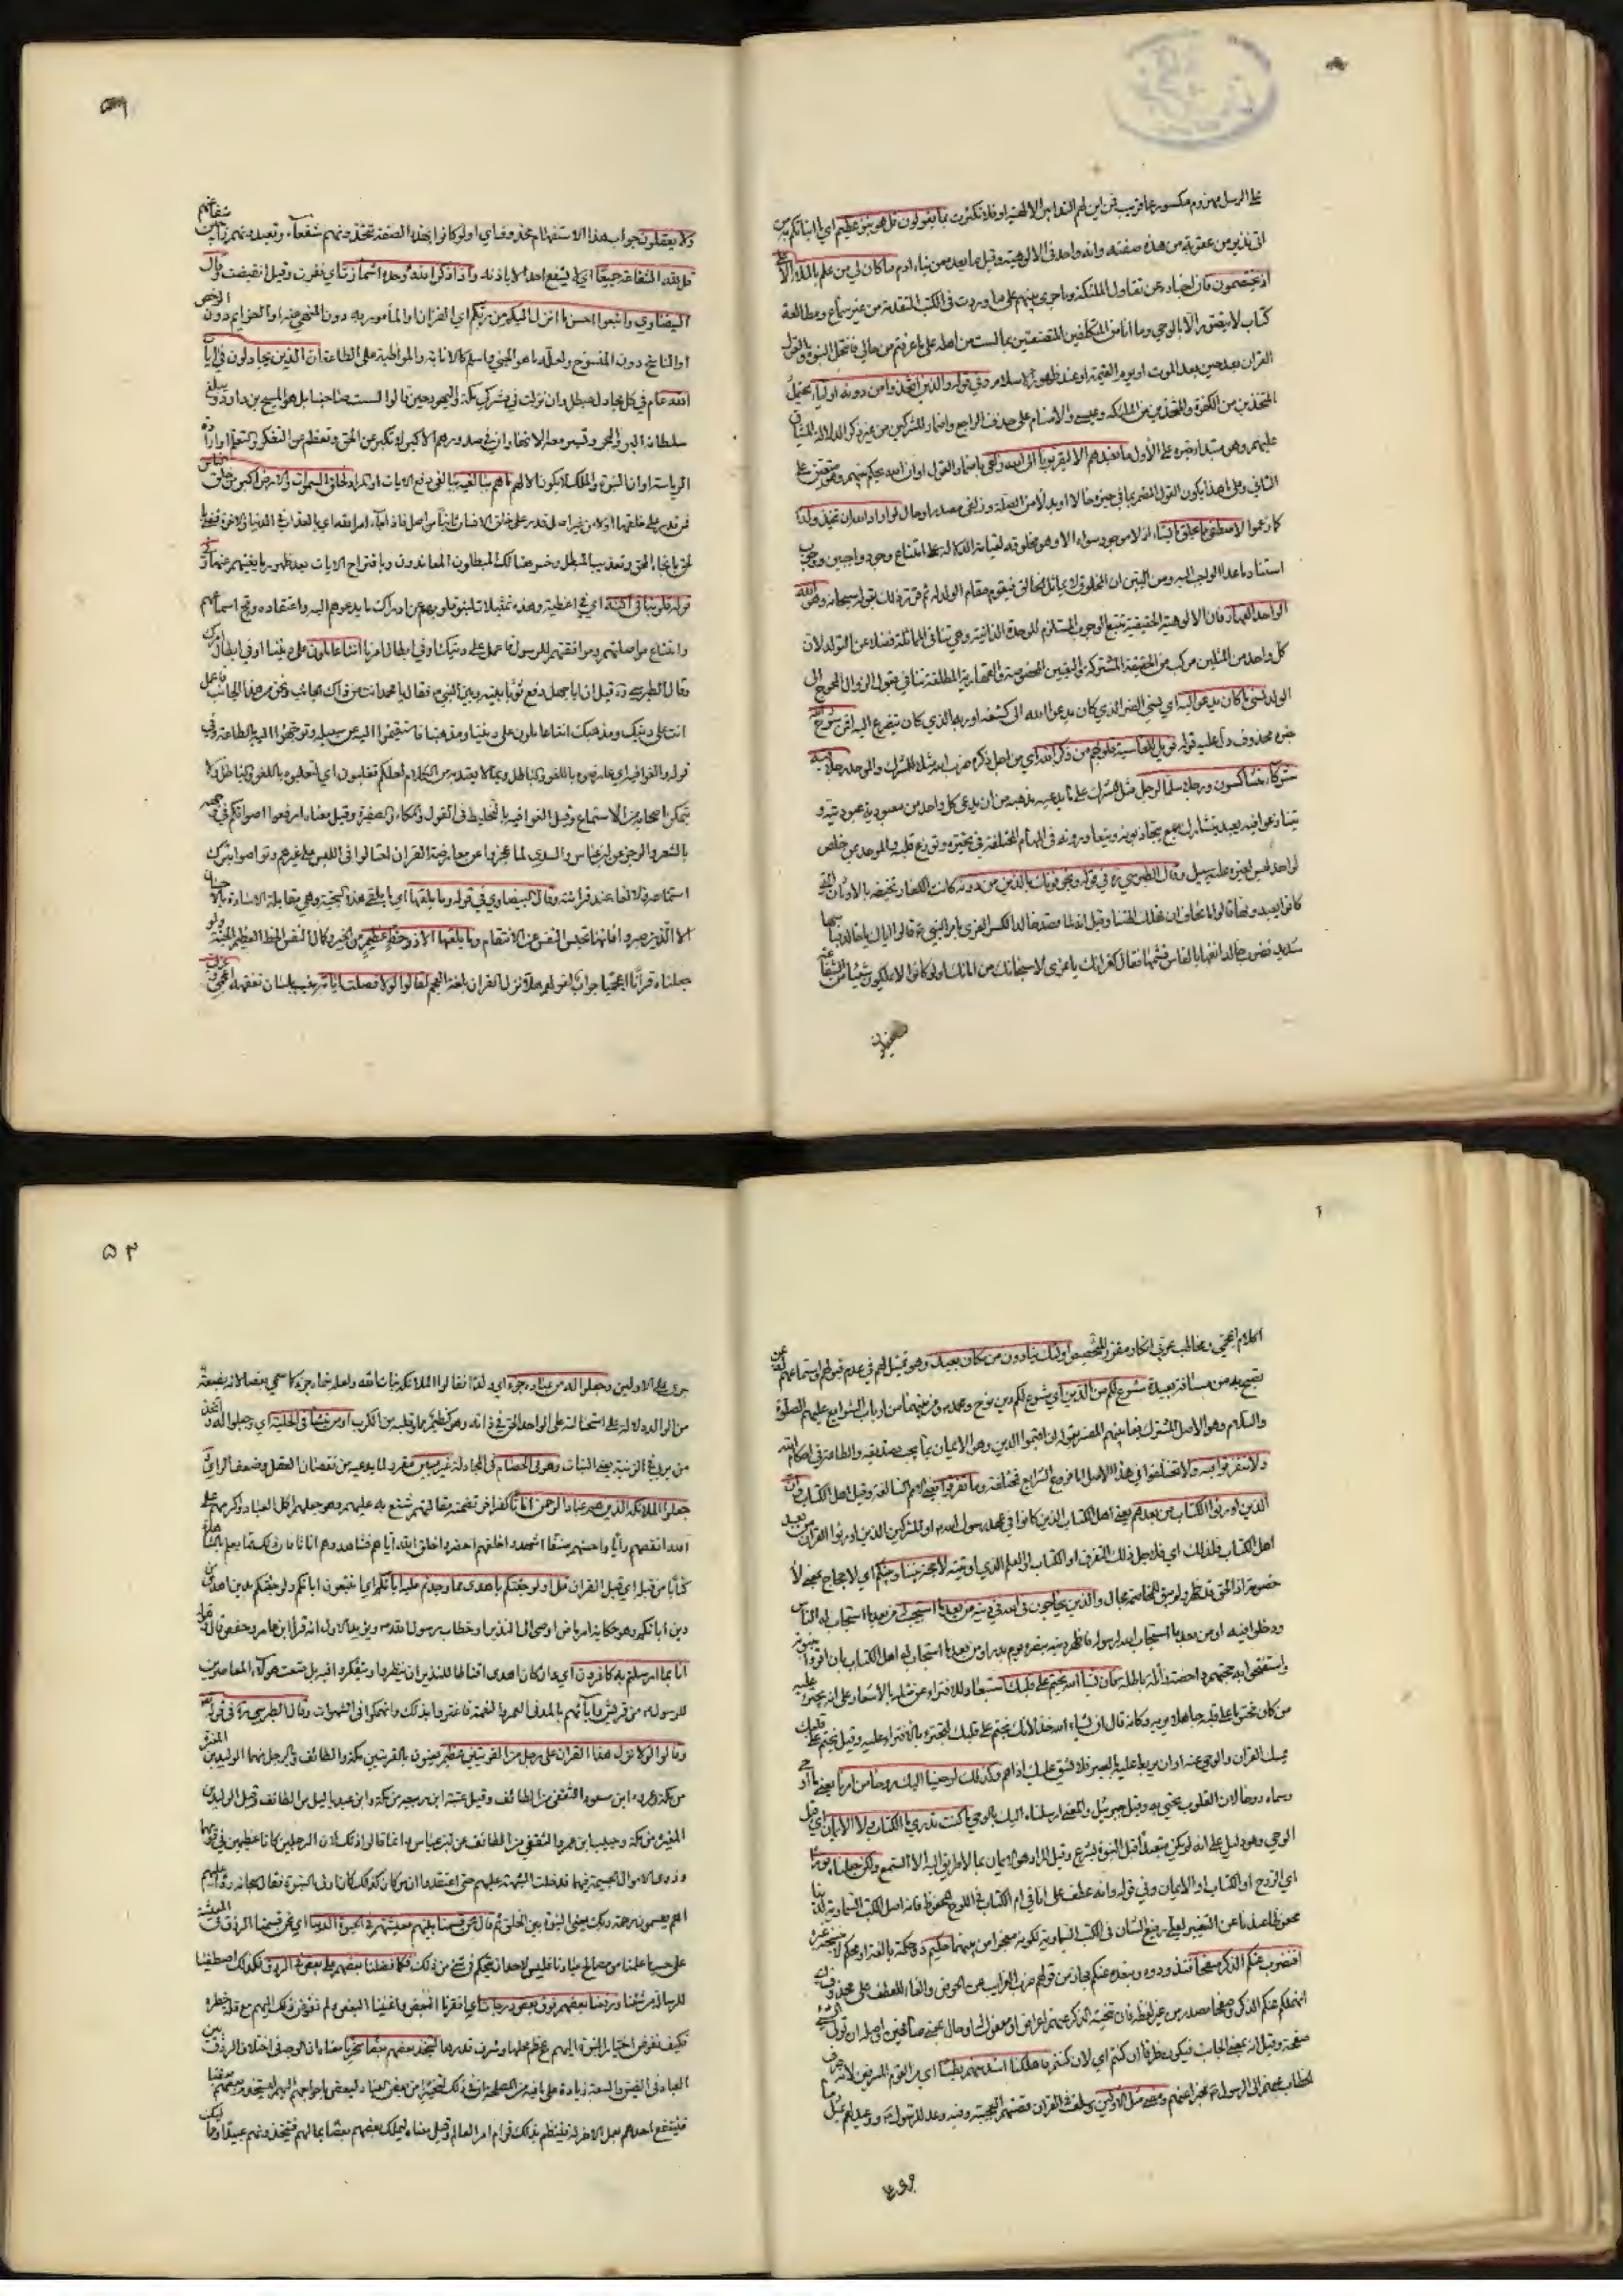 على الرسل مهزوم مكسور عما قريب فمن اين لهم التدابير الالهية او فلا تكترث بما يقولون قل هو نبؤ عظيم اي ما انبأتكم به من
اني نذير من عقوبة من هذه صفته وانه واحد في الالوهية وقيل ما بعده من نباء ادم ما كان لي من علم بالملاء الاعلى
اذ يختصمون فان اخباره عن تقاول الملئكة وما جرى بينهم على ما وردت في الكتب المتقدمة من غير سماع ومطالعة
كتاب لا يتصور الا بالوحي وما انا من المتكلفين المتصنعين بما لست من اهله على ما عرفتم من حالي فانتحل النبوة واتقول
القران بعد حين بعد الموت او يوم القيمة او عند ظهور الاسلام وفي قوله والذين اتخذوا من دونه اولياء يحتمل
المتخذين من الكفرة والمتخذين من الملئكة وعيسى والاصنام على حذف الراجع واضمار المشركين من غير ذكر لدلالة المساق
عليهم وهو مبتدا خبره على الأول ما نعبدهم الا ليقربونا الى الله زلفى باضمار القول او ان الله يحكم بينهم وهو متعين على
الثاني وعلى هذا يكون القول المضمر بما في حيزه حالا او بدلا من الصلة وزلفى مصدر او حال لو اراد الله ان يتخذ ولدا
كما زعموا لاصطفى مما يخلق ما يشاء اذ لا موجود سواه الا وهو مخلوقه لقيام الدلالة على امتناع وجود واجبين ووجوب
استناد ما عدا الواجب اليه ومن البين ان المخلوق لا يماثل الخالق فيقوم مقام الولد له ثم قرر ذلك بقوله سبحانه وهو الله
الواحد القهار فان الالوهية الحقيقية تتبع الوجوب المستلزم للوحدة الذاتية وهي تنافي المماثلة فضلا عن التوالد لان
كل واحد من المثلين مركب من الحقيقة المشتركة والتعين المخصوص والقهارية المطلقة تنافي قبول الزوال المحوج الى
الولد نسي ما كان يدعوا اليه اي نسي الضر الذي كان يدعوا الله الى كشفه او ربه الذي كان يتضرع اليه افمن شرح الله
خبره محذوف دل عليه قوله فويل للقاسية قلوبهم من ذكر الله اي من اجل ذكره ضرب الله مثلا للمشرك والموحد رجلا فيه
شركاء متشاكسون ورجلا سلما لرجل مثل المشرك على ما يدعيه مذهبه من ان يدعي كل واحد من معبوديه عبوديته و
يتنازعوا فيه بعبد يتشارك فيه جمع يتجاذبونه ويتعاورونه في المهام المختلفة في تحيره وتوزع قلبه والموحد بمن خلص
لواحد ليس لغيره عليه سبيل وقال الطبرسي ره في قوله ويخوفونك بالذين من دونه كانت الكفار تخيفه بالاوثان التي
كانوا يعبدونها قالوا اما تخاف ان تهلك الهتنا وقيل انه لما قصد خالد لكسر العزى بامر النبي ص قالوا اياك يا خالد فبأسها
شديد فضرب خالد انفها بالفاس فهشمها فقال كفرانك يا عزى لا سبحانك من اهانك اولو كانوا لا يملكون شيئا من الشفاعة
ولا يعقلون جواب هذا الاستفهام محذوف اي اولو كانوا بهذه الصفة تتخذونهم شفعاء وتعبدونهم راجين شفاعتهم
قل لله الشفاعة جميعا اي لا يشفع احد الا باذنه واذا ذكر الله وحده اشمأزت اي نفرت وقيل انقبضت وقال
البيضاوي واتبعوا احسن ما انزل اليكم من ربكم اي القران او المأمور به دون المنهي عنه او العزايم دون الرخص
او الناسخ دون المنسوخ ولعله ما هو انجى واسلم كالانابة والمواظبة على الطاعة ان الذين يجادلون في ايات
الله عام في كل مجادل مبطل وان نزلت في مشركي مكة واليهود حين قالوا لست صاحبنا بل هو المسيح بن داود يبلغ
سلطانه البر والبحر وتسير معه الانهار ان في صدورهم الا كبر اي تكبر عن الحق وتعظم عن التفكر والتعلم او ارادة
الرياسة او ان النبوة والملك لا يكونان الا لهم ما هم ببالغيه ببالغي دفع الايات او المراد لخلق السموات والارض اكبر من خلق الناس
فمن قدر على خلقها اولا من غير اصل قدر على خلق الانسان ثانيا من اصل فاذا جاء امر الله اي بالعذاب في الدنيا والاخرة قضي
بالحق بانجاء المحق وتعذيب المبطل وخسر هنالك المبطلون المعاندون وباقتراح الايات بعد ظهور ما يغنيهم عنها وفي
قوله قلوبنا في اكنة اي في اغطية وهذه تمثيلات لنبو قلوبهم عن ادراك ما يدعوهم اليه واعتقاده ومج اسماعهم
وامتناع مواصلتهم وموافقتهم للرسول فاعمل على دينك او في ابطال امرنا اننا عاملون على ديننا او في ابطال امرك
وقال الطبرسي ره قيل ان ابا جهل رفع ثوبا بينه وبين النبي ص فقال يا محمد انت من ذلك الجانب ونحن من هذا الجانب فاعمل
انت على دينك ومذهبك اننا عاملون على ديننا ومذهبنا فاستقيموا اليه عن سبيله وتوجهوا اليه بالطاعة وفي
قوله والغوا فيه اي عارضوه باللغو والباطل وبما لا يعتد به من الكلام لعلكم تغلبون اي لتغلبوه باللغو والباطل ولا
يتمكن اصحابه من الاستماع وقيل الغوا فيه بالتخليط في القول والمكاء والصفير وقيل معناه ارفعوا اصواتكم في وجهه
بالشعر والرجز عن ابن عباس والسدي لما عجزوا عن معارضة القران احتالوا في اللبس على غيرهم وتواصوا بترك
استماعه والالغاء عند قرائته وقال البيضاوي في قوله وما يلقيها اي ما يلقى هذه السجية وهي مقابلة الاساءة بالاحسان
الا الذين صبروا فانها تحبس النفس عن الانتقام وما يلقيها الا ذو حظ عظيم من الخير وكمال النفس وقيل الحظ العظيم الجنة ولو
جعلناه قرآنا اعجميا جواب لقولهم هلا نزل القران بلغة العجم لقالوا لولا فصلت اياته بينت بلسان نفقهه اعجمي وعربي
۵۲
اكلام اعجمي ومخاطب عربي انكار مقرر للتخصيص اولئك ينادون من مكان بعيد وهو تمثيل لهم في عدم قبولهم واستماعهم له بمن
تصيح به من مسافة بعيدة شرع لكم من الدين اي شرع لكم دين نوح ومحمد ومن بينهما من ارباب الشرايع عليهم الصلوة
والسلام وهو الاصل المشترك فيما بينهم المفسر بقوله ان اقيموا الدين وهو الايمان بما يجب تصديقه والطاعة في احكام الله
ولا تتفرقوا فيه ولا تختلفوا في هذا الاصل اما فروع الشرايع فمختلفة وما تفرقوا يعني الامم السالفة وقيل اهل الكتاب وان
الذين اورثوا الكتاب من بعدهم يعني اهل الكتاب الذين كانوا في عهد رسول الله ص او المشركين الذين اورثوا القران من بعد
اهل الكتاب فلذلك اي فلاجل ذلك التفرق او الكتاب او العلم الذي اوتيته لا حجة بيننا وبينكم اي لا حجاج بمعنى لا
خصومة اذ الحق قد ظهر ولم يبق للمخاصمة مجال والذين يحاجون في الله في دينه من بعد ما استجيب له من بعد ما استجاب له الناس
ودخلوا فيه او من بعد ما استجاب الله لرسوله فاظهر دينه بنصره يوم بدر او من بعد ما استجاب له اهل الكتاب بان اقروا بنبوته
واستفتحوا به حجتهم داحضة زائلة باطلة فان يشاء الله يختم على قلبك استبعاد للافتراء عن مثله بالاشعار على انه انما يجترئ عليه
من كان مختوما على قلبه جاهلا بربه وكانه قال ان يشاء الله خذلانك يختم على قلبك لتجترئ بالافتراء عليه وقيل يختم على قلبك
يمسك القران والوحي عنه او ان يربط عليه بالصبر فلا يشق عليك اذاهم وكذلك اوحينا اليك روحا من امرنا يعني ما اوحي
وسماه روحا لان القلوب تحيى به وقيل جبرئيل والمعنى ارسلناه اليك بالوحي ما كنت تدري ما الكتاب ولا الايمان اي قبل
الوحي وهو دليل على انه لم يكن متعبدا قبل النبوة بشرع وقيل المراد هو الايمان بما لا طريق اليه الا السمع ولكن جعلناه نورا
اي الروح او الكتاب او الايمان وفي قوله وانه عطف على انا في ام الكتاب في اللوح المحفوظ فانه اصل الكتب السماوية لدينا
محفوظا عندنا عن التغيير لعلي رفيع الشان في الكتب السماوية لكونه معجزا من بينها حكيم ذو حكمة بالغة او محكم لا ينسخه غيره
افنضرب عنكم الذكر صفحا افنذوده ونبعده عنكم مجاز من قولهم ضرب الغرايب عن الحوض والفاء للعطف على محذوف اي
انهملكم فنضرب عنكم الذكر وصفحا مصدر من غير لفظه فان تنحية الذكر عنهم اعراض او مفعول له او حال بمعنى صافحين واصله ان تولي الشئ
صفحة وقيل انه بمعنى الجانب فيكون ظرفا ان كنتم اي لان كنتم فاهلكنا اشد منهم بطشا اي من القوم المسرفين لانه صرف
الخطاب عنهم الى الرسول ص مخبرا عنهم ومضى مثل الاولين وسلف في القران قصتهم العجيبة وفيه وعد للرسول ص ووعيد لهم بمثل ما
جرى على الاولين وجعلوا له من عباده جزءا اي ولدا فقالوا الملائكة بنات الله ولعله سماه جزءا كما سمي بعضا لانه بضعة
من الوالد دلالة على استحالته على الواحد الحق في ذاته وهو كظيم مملو قلبه من الكرب او من ينشأ في الحلية اي وجعلوا له واتخذ
من يربى في الزينة يعني البنات وهو في الخصام في المجادلة غير مبين مقرر لما يدعيه من نقصان العقل وضعف الراي و
جعلوا الملائكة الذين هم عباد الرحمن اناثا كفر اخر تضمنه مقالهم شنع به عليهم وهو جعلهم اكمل العباد واكرمهم على
الله انقصهم رأيا واخسهم صنفا اشهدوا خلقهم احضروا خلق الله اياهم فشاهدوهم اناثا فان ذلك مما يعلم بالمشاهدة
كتابا من قبله اي قبل القران قل اولو جئتكم باهدى مما وجدتم عليه اباءكم اي اتتبعون اباءكم ولو جئتكم بدين اهدى من
دين ابائكم وهو حكاية امر ماض اوحي الى النذير او خطاب لرسول الله ص ويؤيد الاول انه قرأ ابن عامر وحفص قال وقوله
انا بما ارسلتم به كافرون اي وان كان اهدى اقناطا للنذير ان ينظروا ويتفكروا فيه بل متعت هولاء المعاصرين
للرسول ص من قريش واباءهم بالمد في العمر والنعمة فاغتروا بذلك وانهمكوا في الشهوات وقال الطبرسي ره في قوله
وقالوا لولا نزل هذا القران على رجل من القريتين عظيم يعنون بالقريتين مكة والطائف والرجل منهما الوليد بن المغيرة
من مكة وعروة ابن مسعود الثقفي من الطائف وقيل عتبة ابن ربيعة من مكة وابن عبد ياليل من الطائف وقيل الوليد بن
المغيرة من مكة وحبيب ابن عمرو الثقفي من الطائف عن ابن عباس وانما قالوا ذلك لان الرجلين كانا عظيمين في قومهما
وذوي الاموال الجسيمة فيهما فدخلت الشبهة عليهم حتى اعتقدوا ان من كان كذلك كان اولى بالنبوة فقال سبحانه ردا عليهم
اهم يقسمون رحمة ربك يعني النبوة بين الخلق ثم قال نحن قسمنا بينهم معيشتهم في الحيوة الدنيا اي نحن قسمنا الرزق في المعيشة
على حسب ما علمنا من مصالح عبادنا فليس لاحد ان يتحكم في شئ من ذلك فكما فضلنا بعضهم على بعض في الرزق فكذلك اصطفينا
للرسالة من شئنا ورفعنا بعضهم فوق بعض درجات اي افقرنا البعض واغنينا البعض ولم نفوض ذلك اليهم مع قلة خطره
فكيف نفوض اختيار النبوة اليهم مع عظم محلها وشرف قدرها ليتخذ بعضهم بعضا سخريا معناه ان الوجه في اختلاف الرزق بين
العباد في الضيق والسعة زيادة على ما فيه من المصلحة ان في ذلك تسخيرا من بعض العباد لبعض باحواجهم اليهم ليستخدم بعضهم بعضا
فينتفع احدهم بعمل الاخر له فينتظم بذلك قوام امر العالم وقيل معناه ليملك بعضهم بعضا بمالهم فيتخذونهم عبيدا ومماليك